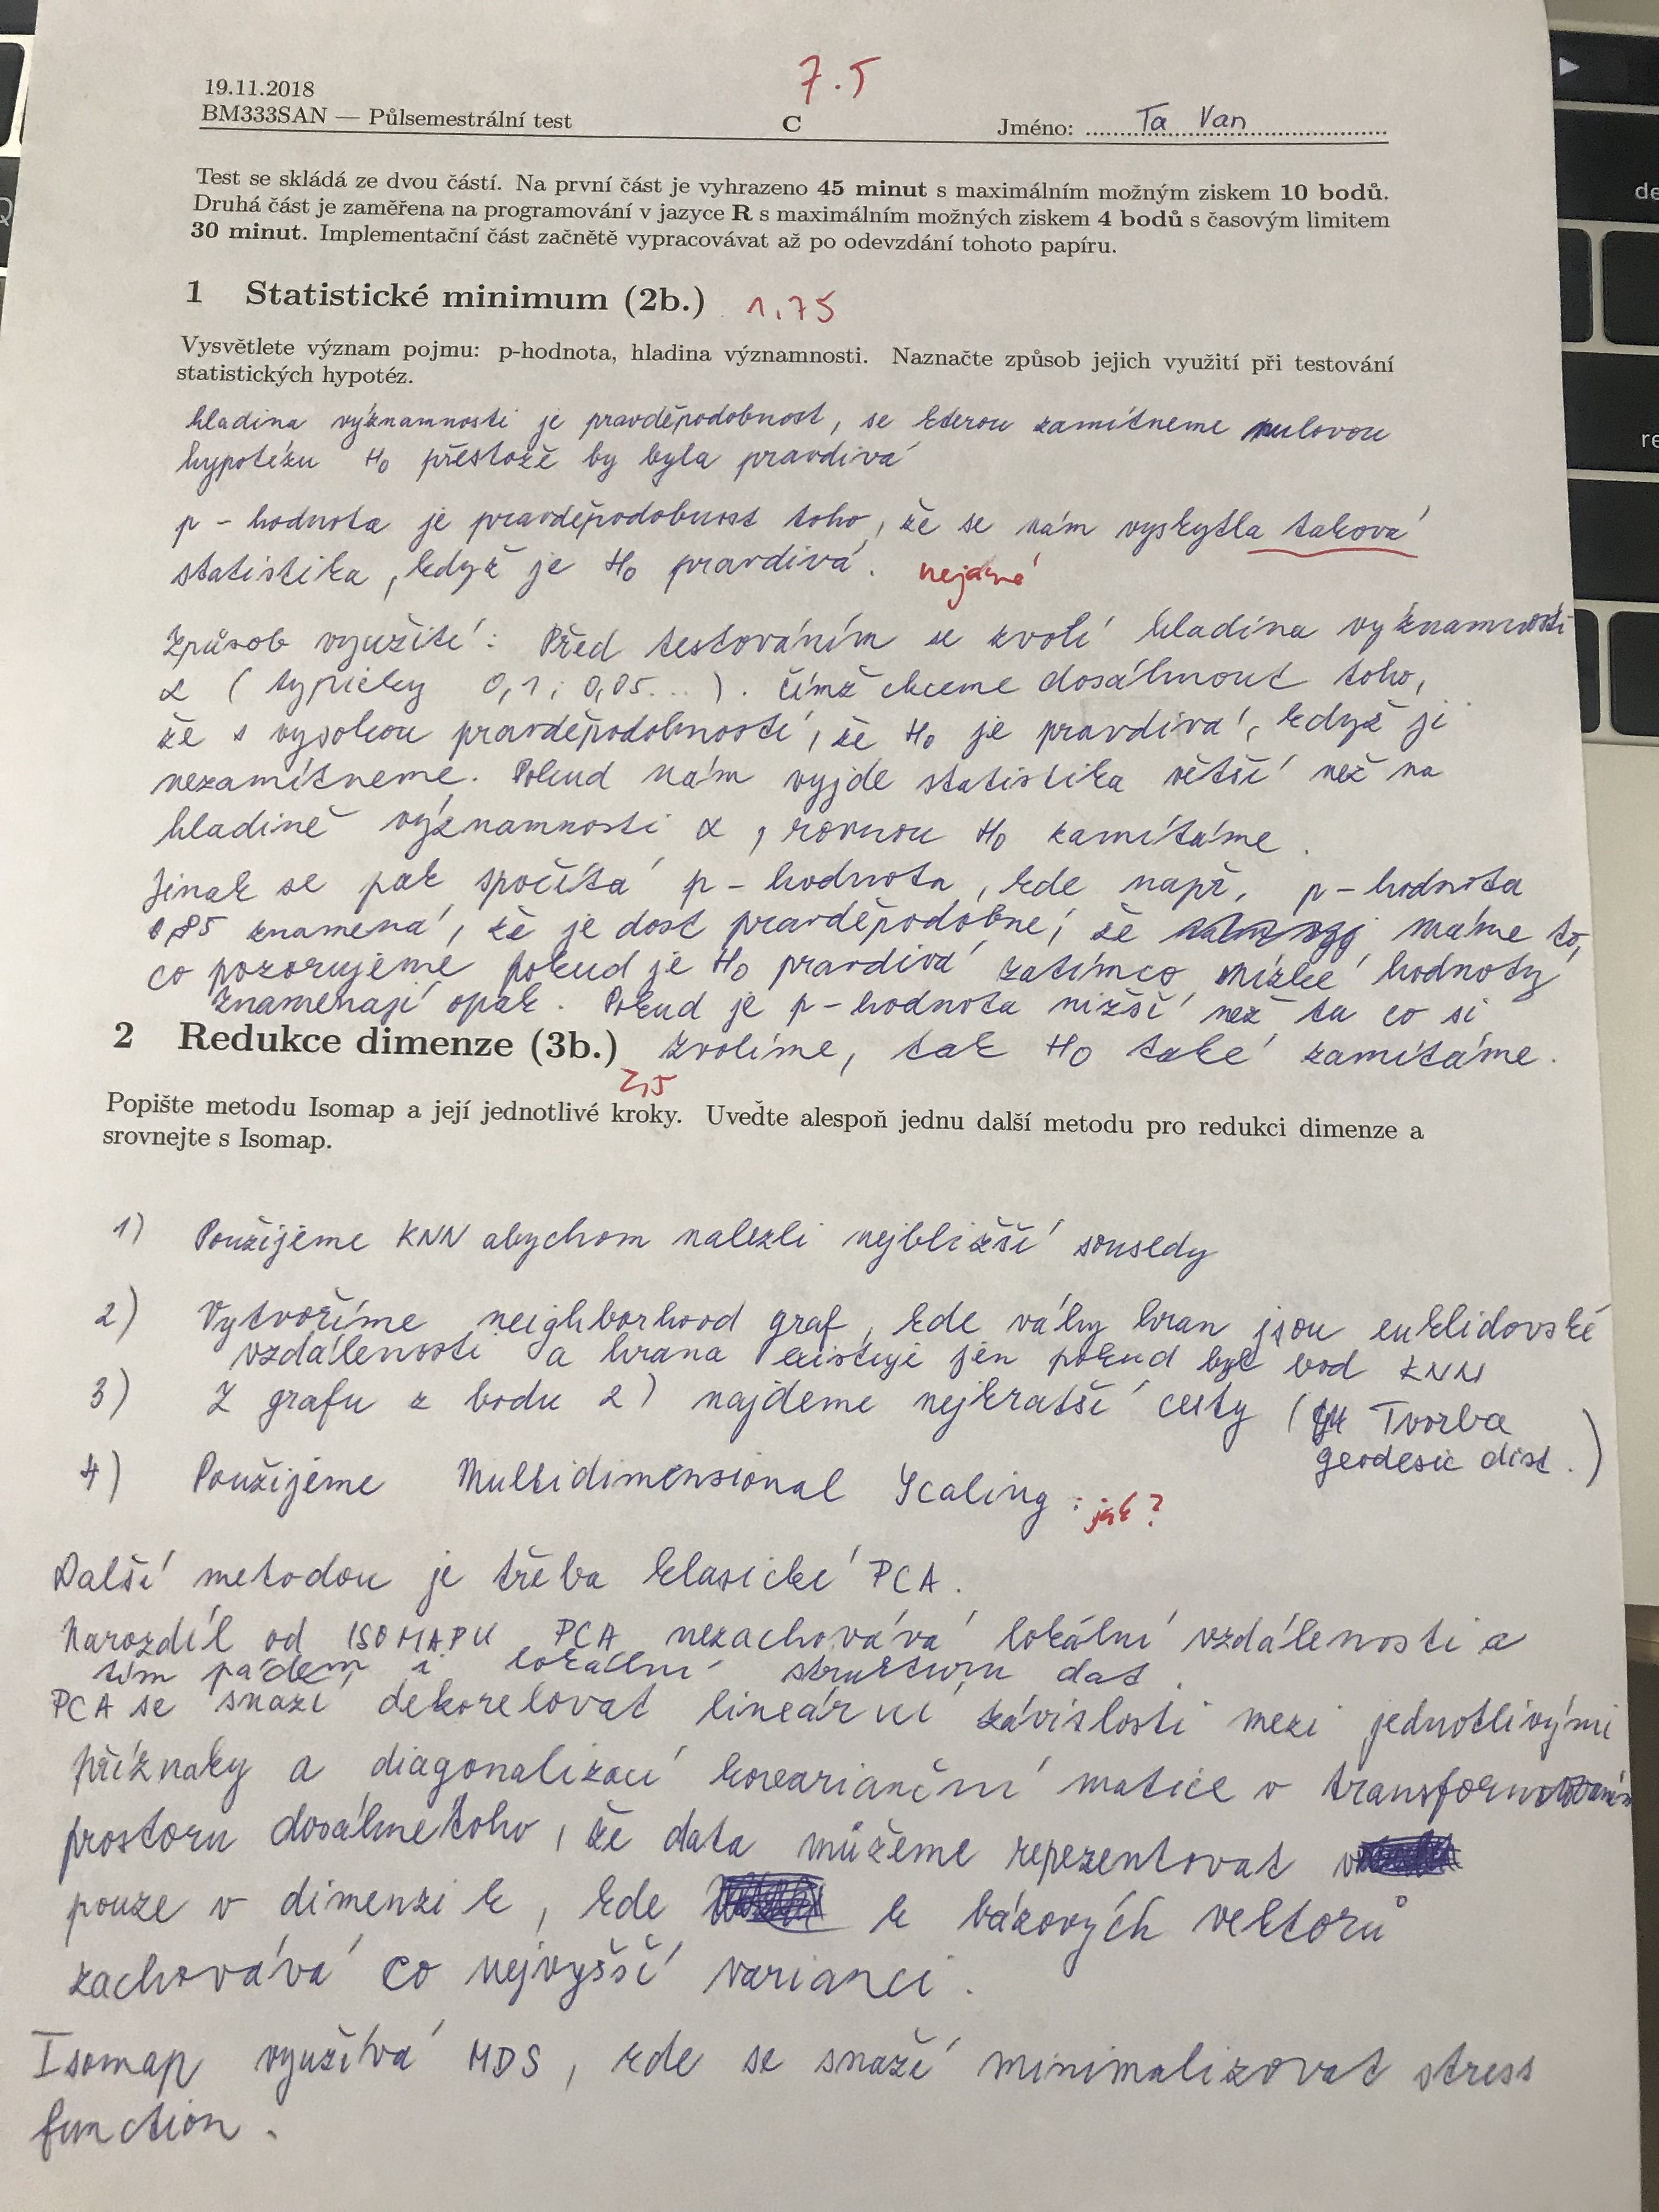 7.5
19.11.2018
BM333SAN — Půlsemestrální test
C
Jméno: Ta Van
Test se skládá ze dvou částí. Na první část je vyhrazeno 45 minut s maximálním možným ziskem 10 bodů.
Druhá část je zaměřena na programování v jazyce R s maximálním možných ziskem 4 bodů s časovým limitem
30 minut. Implementační část začnětě vypracovávat až po odevzdání tohoto papíru.
1 Statistické minimum (2b.) 1,75
Vysvětlete význam pojmu: p-hodnota, hladina významnosti. Naznačte způsob jejich využití při testování
statistických hypotéz.
hladina významnosti je pravděpodobnost, se kterou zamítneme nulovou
hypotézu H0 přestože by byla pravdivá
p - hodnota je pravděpodobnost toho, že se nám vyskytla taková
statistika, když je H0 pravdivá. nejasné
Způsob využití: Před testováním se zvolí hladina významnosti
α (typicky 0,1; 0,05...). čímž chceme dosáhnout toho,
že s vysokou pravděpodobností, že H0 je pravdivá, když ji
nezamítneme. Pokud nám vyjde statistika větší než na
hladině významnosti α, rovnou H0 zamítáme.
Jinak se pak spočítá p - hodnota, kde např. p - hodnota
0,85 znamená, že je dost pravděpodobné, že máme to,
co pozorujeme pokud je H0 pravdivá zatímco nízké hodnoty
znamenají opak. Pokud je p - hodnota nižší než ta co si
2 Redukce dimenze (3b.) zvolíme, tak H0 také zamítáme.
2,5
Popište metodu Isomap a její jednotlivé kroky. Uveďte alespoň jednu další metodu pro redukci dimenze a
srovnejte s Isomap.
1) Použijeme KNN abychom nalezli nejbližší sousedy
2) Vytvoříme neighborhood graf, kde váhy hran jsou euklidovské
vzdálenosti a hrana existuje jen pokud byl bod KNN
3) Z grafu z bodu 2) najdeme nejkratší cesty (Tvorba
geodesic dist.)
4) Použijeme Multidimensional Scaling : jak?
Další metodou je třeba klasické PCA.
Narozdíl od ISOMAPU PCA nezachovává lokální vzdálenosti a
tím pádem i lokální strukturu dat.
PCA se snaží dekorelovat lineární závislosti mezi jednotlivými
příznaky a diagonalizací kovarianční matice v
prostoru dosáhne toho, že data můžeme repezentovat
pouze v dimenzi k, kde k bázových vektorů
zachovává co nejvyšší varianci.
Isomap využívá MDS, kde se snaží minimalizovat stress
function.